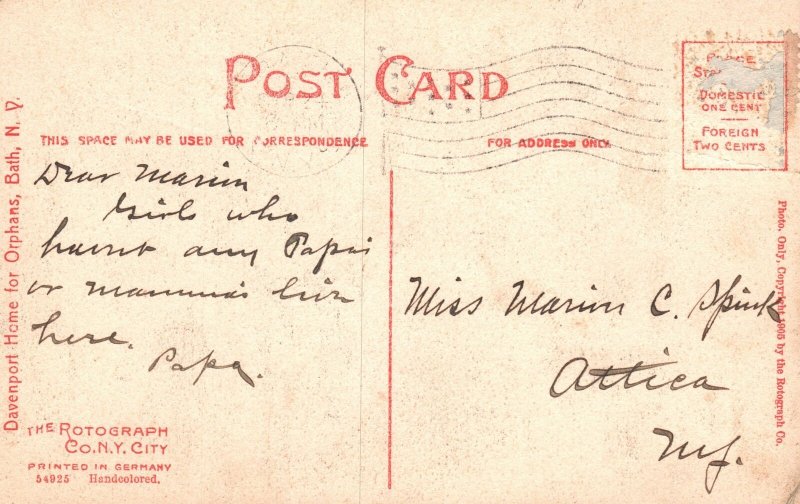 POST CARD
PLACE
DOMESTIC
ONE CENT
FOREIGN
TWO CENTS
THIS SPACE MAY BE USED FOR CORRESPONDENCE
FOR ADDRESS ONLY
Dear Marion
Girls who
havnt any Papas
or mamma's live
here.
Papa.
Miss Marion C. Spink
Attica
N.Y.
Davenport Home for Orphans, Bath, N. Y.
THE ROTOGRAPH
CO. N.Y. CITY
PRINTED IN GERMANY
54925 Handcolored.
Photo. Only, Copyright 1905 by the Rotograph Co.